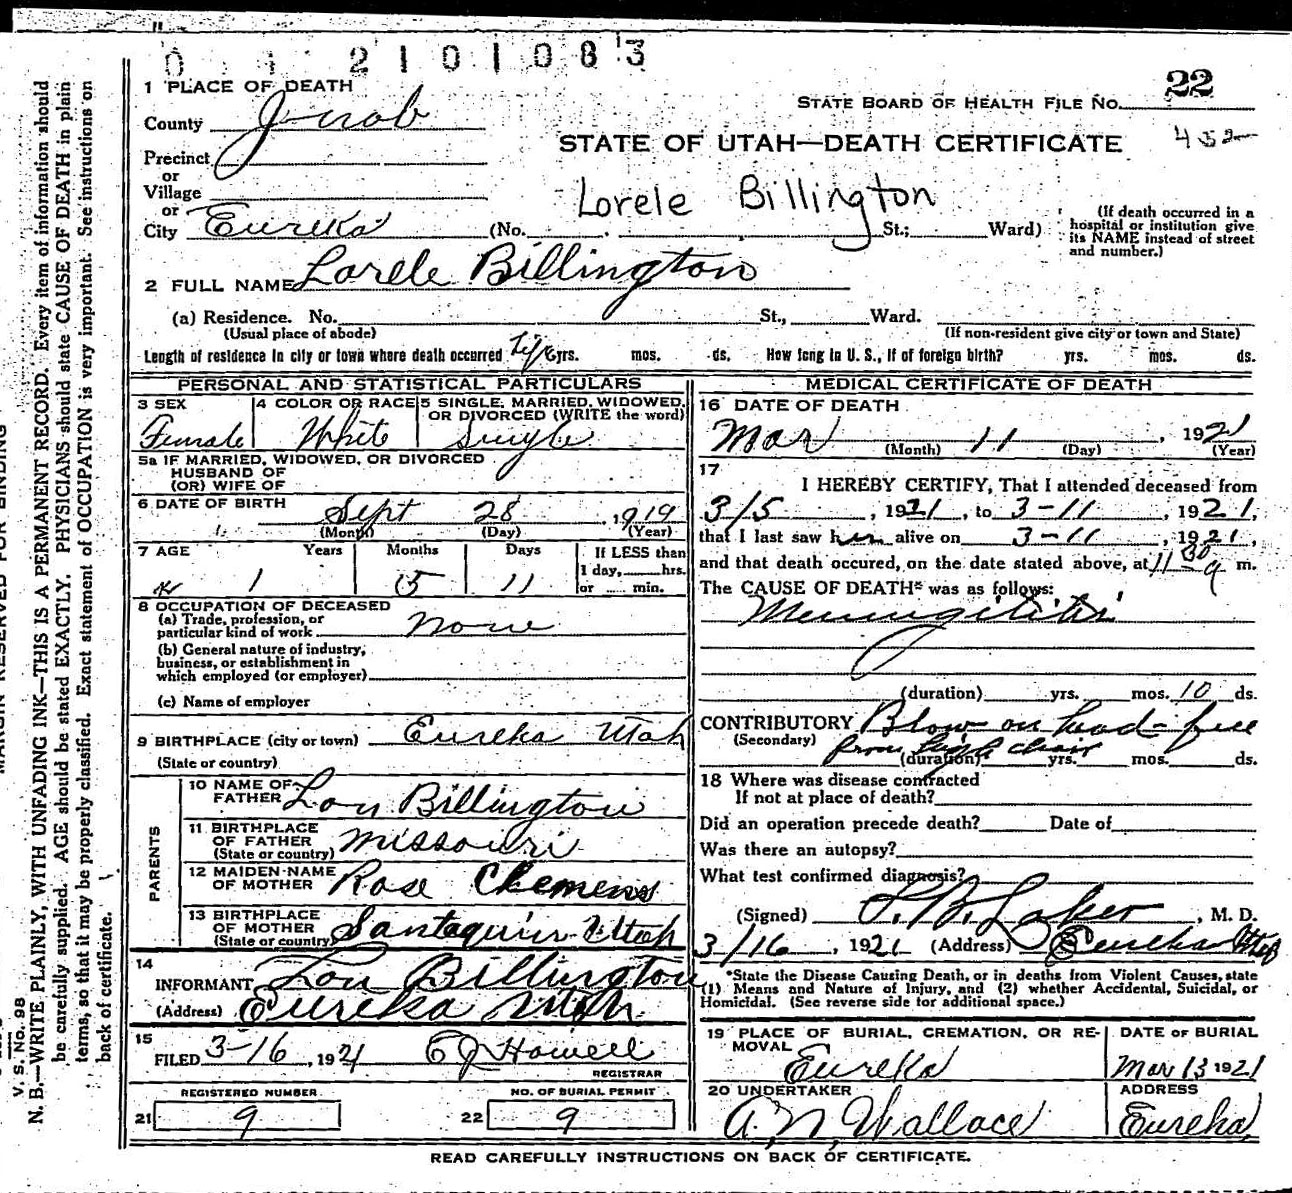 0 4 2 1 0 1 0 8 3
22
STATE BOARD OF HEALTH FILE NO.
STATE OF UTAH—DEATH CERTIFICATE
432
1 PLACE OF DEATH
County Juab
Precinct
or
Village
or
City Eureka (No. St.; Ward)
Lorele Billington
(If death occurred in a hospital or institution give its NAME instead of street and number.)
2 FULL NAME Lorele Billington
(a) Residence. No. St., Ward.
(Usual place of abode) (If non-resident give city or town and State)
Length of residence in city or town where death occurred Life yrs. mos. ds. How long in U. S., if of foreign birth? yrs. mos. ds.
PERSONAL AND STATISTICAL PARTICULARS
3 SEX Female
4 COLOR OR RACE White
5 SINGLE, MARRIED, WIDOWED, OR DIVORCED (WRITE the word) Single
5a IF MARRIED, WIDOWED, OR DIVORCED
HUSBAND OF
(OR) WIFE OF
6 DATE OF BIRTH Sept 28, 1919
(Month) (Day) (Year)
7 AGE Years Months Days If LESS than
1 day, hrs.
or min.
1 5 11
8 OCCUPATION OF DECEASED
(a) Trade, profession, or
particular kind of work None
(b) General nature of industry,
business, or establishment in
which employed (or employer)
(c) Name of employer
9 BIRTHPLACE (city or town) Eureka Utah
(State or country)
PARENTS
10 NAME OF
FATHER Lou Billington
11 BIRTHPLACE
OF FATHER
(State or country) Missouri
12 MAIDEN NAME
OF MOTHER Rose Clemens
13 BIRTHPLACE
OF MOTHER
(State or country) Santaquin Utah
14
INFORMANT Lou Billington
(Address) Eureka Utah
15
FILED 3-16, 1921 E J Howell
REGISTRAR
REGISTERED NUMBER NO. OF BURIAL PERMIT
21 9 22 9
MEDICAL CERTIFICATE OF DEATH
16 DATE OF DEATH
Mar 11, 1921
(Month) (Day) (Year)
17
I HEREBY CERTIFY, That I attended deceased from
3/5, 1921, to 3-11, 1921,
that I last saw her alive on 3-11, 1921,
and that death occured, on the date stated above, at 11 30 a m.
The CAUSE OF DEATH* was as follows:
Meningitis
(duration) yrs. mos. 10 ds.
CONTRIBUTORY Blow on head-fell
(Secondary) from high chair
(duration) yrs. mos. ds.
18 Where was disease contracted
If not at place of death?
Did an operation precede death? Date of
Was there an autopsy?
What test confirmed diagnosis?
(Signed) , M. D.
3/16, 1921 (Address) Eureka Utah
*State the Disease Causing Death, or in deaths from Violent Causes, state
(1) Means and Nature of Injury, and (2) whether Accidental, Suicidal, or
Homicidal. (See reverse side for additional space.)
19 PLACE OF BURIAL, CREMATION, OR RE-
MOVAL Eureka
DATE OF BURIAL
Mar 13 1921
20 UNDERTAKER
A. N. Wallace
ADDRESS
Eureka,
READ CAREFULLY INSTRUCTIONS ON BACK OF CERTIFICATE.
MARGIN RESERVED FOR BINDING
V. S. No. 98
N. B.—WRITE PLAINLY, WITH UNFADING INK—THIS IS A PERMANENT RECORD. Every item of information should
be carefully supplied. AGE should be stated EXACTLY. PHYSICIANS should state CAUSE OF DEATH in plain
terms, so that it may be properly classified. Exact statement of OCCUPATION is very important. See instructions on
back of certificate.